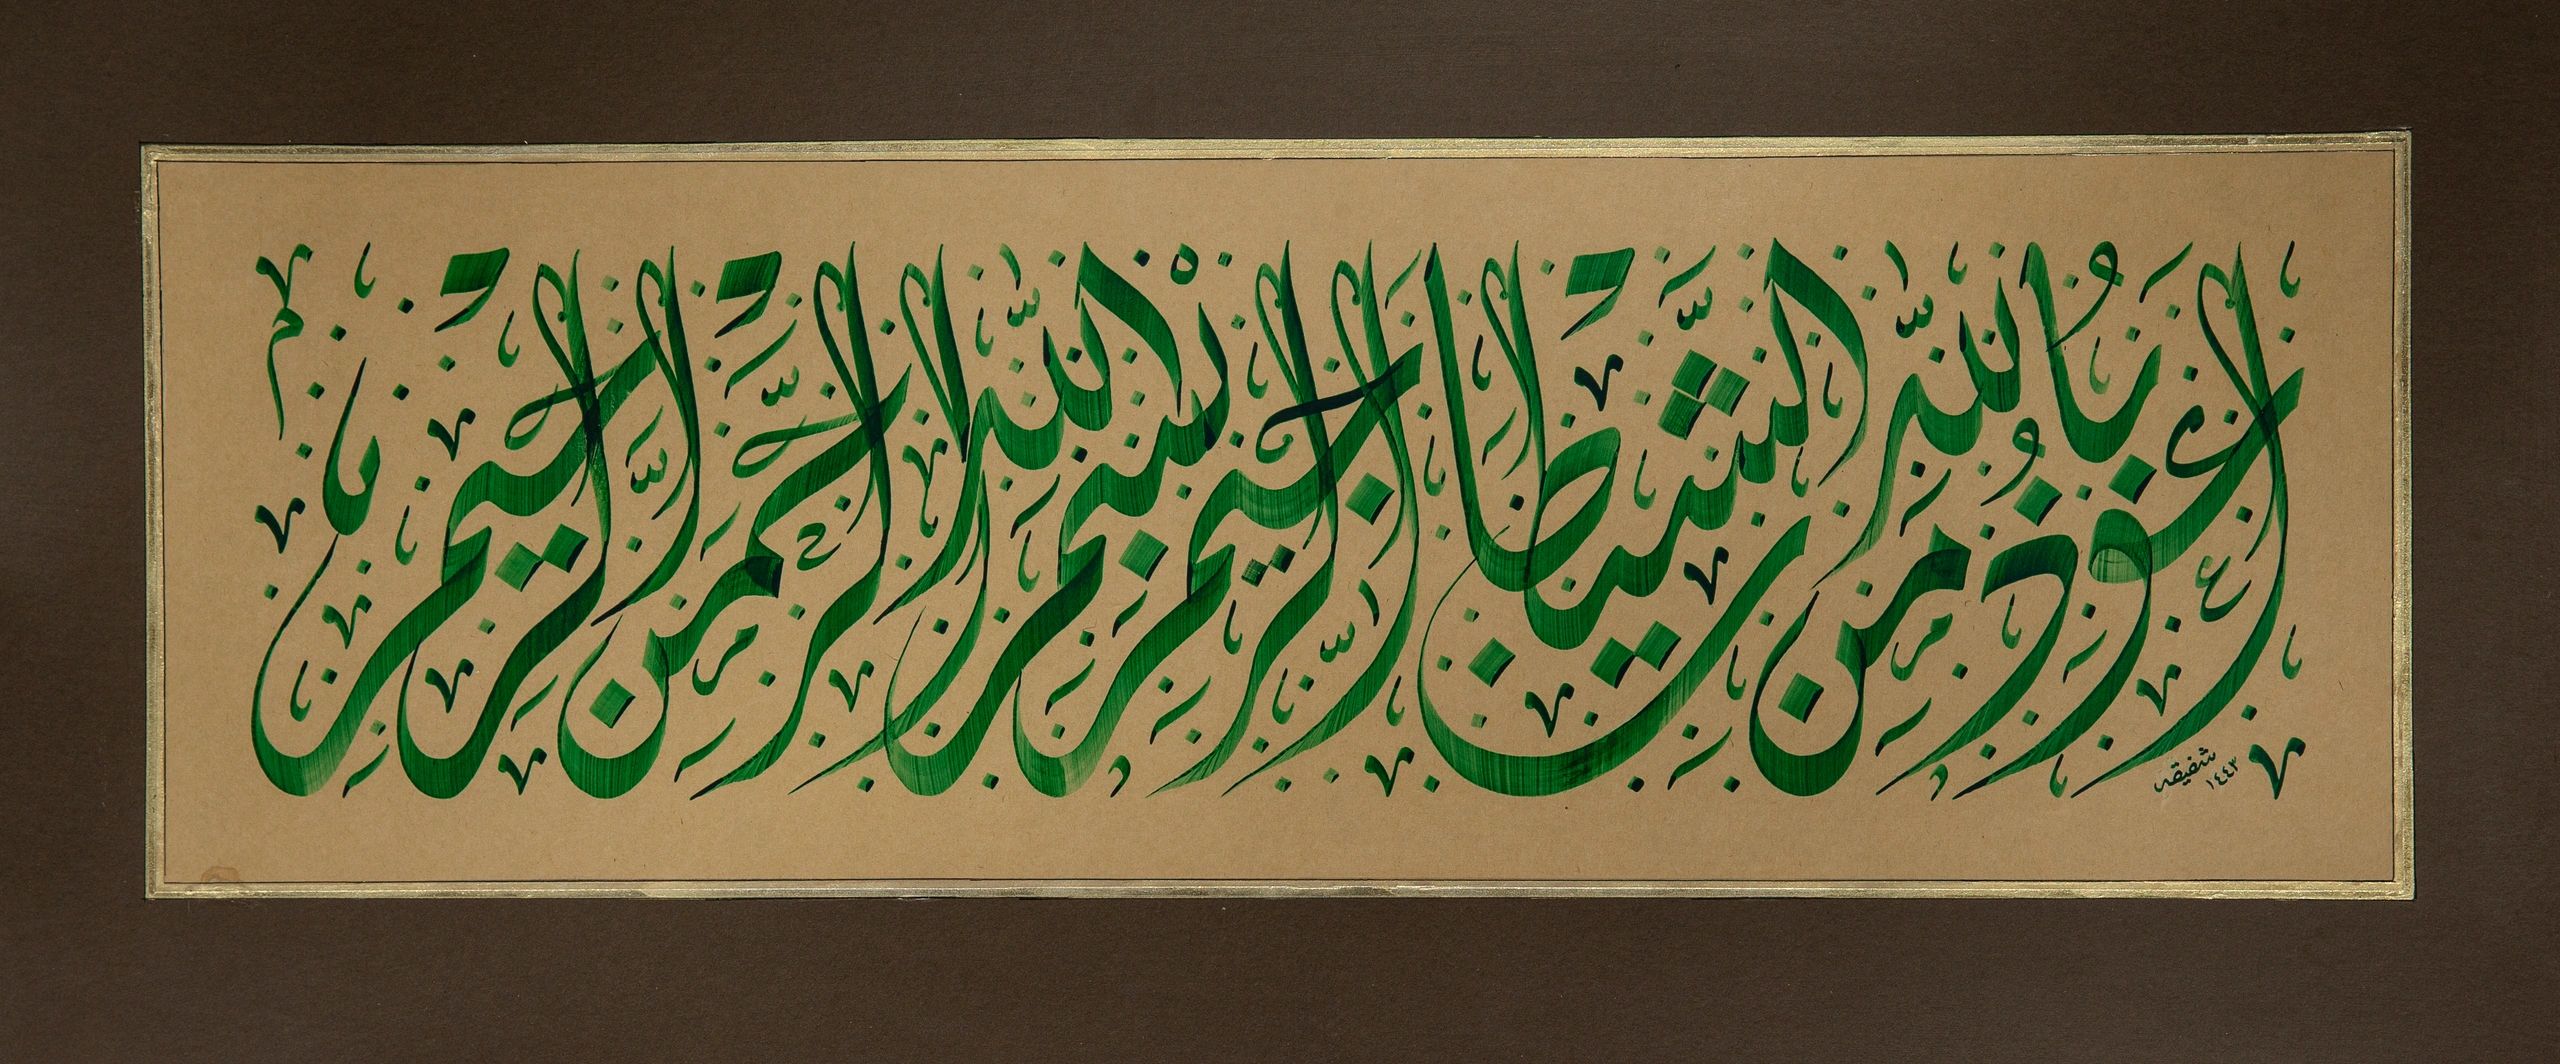 أعوذ بالله من الشيطان الرجيم بسم الله الرحمن الرحيم
شفيقه
١٤٤٣